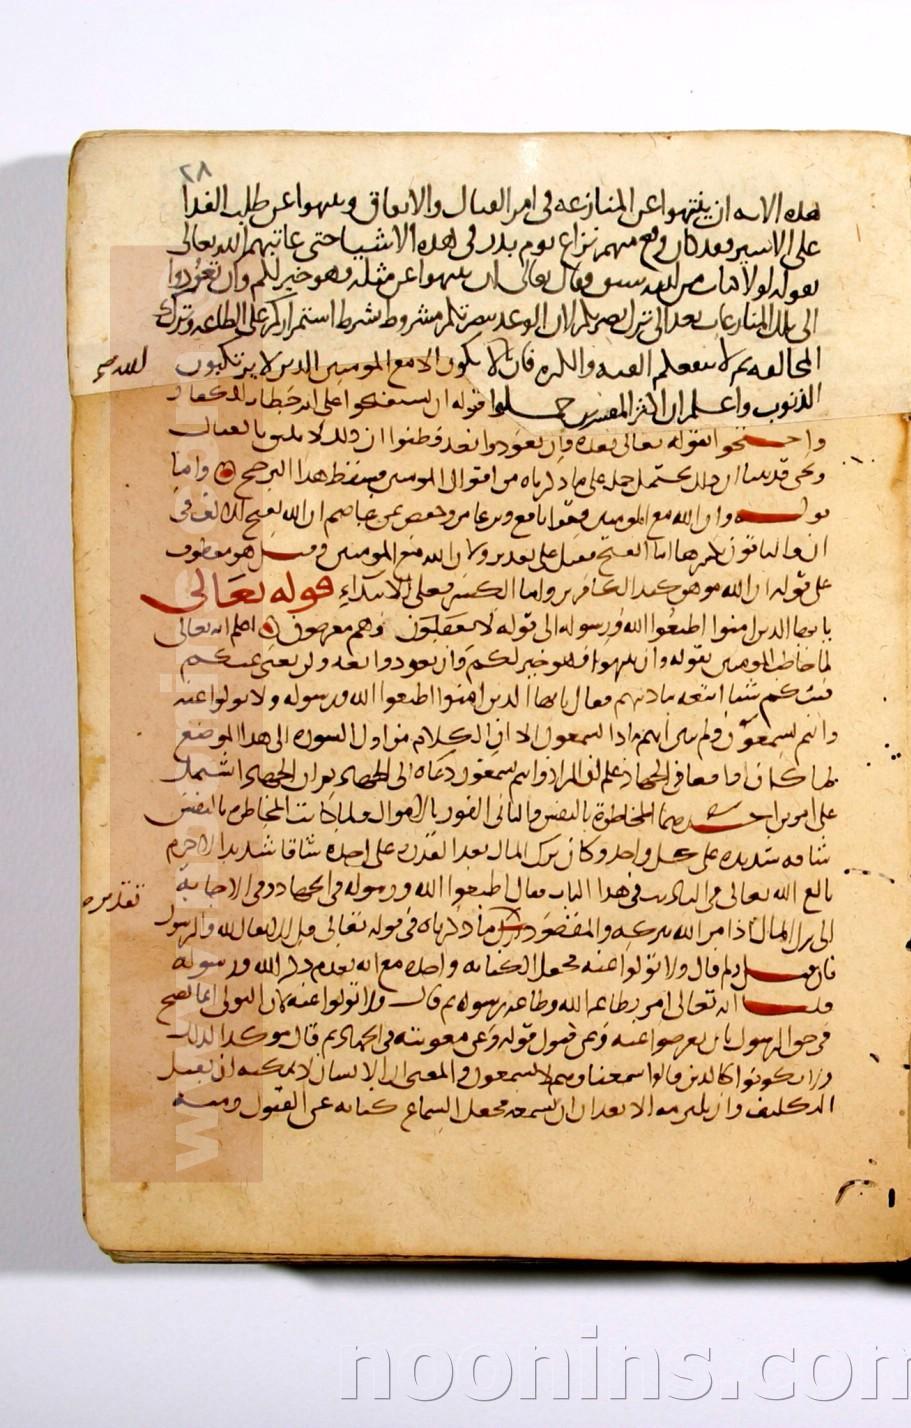 ٢٨
هذه الاىه ان ينتهوا عن المنازعه فى امر القىال والانفاق وىىىهوا عن طلب الفدا
على الاسير فقد كان وقع منهم نزاع يوم بدر فى هذه الاشيا حتى عاتبهم الله تعالى
بقوله لولا كتاب من الله سبق فقال تعالى ان تنتهوا عن مثله فهو خير لكم وان تعودوا
الى تلك المنازعات نعد الى ترك نصرتكم لان الوعد بنصرتكم مشروط بشرط استمراركم على الطاعه وترك
المخالفه ثم لا تنفعكم الفئه والكثره فان الله لا يكون الا مع المومنين الذين لا يرتكبون
الله صح
الذنوب واعلم ان اكثر المفسرين حملوا قوله ان تستفتحوا على انه خطاب للكفار
واحتجوا بقوله تعالى بعده وان تعودوا نعد فظنوا ان ذلك لا يليق بالقتال
ونحن قد بينا ان ذلك يحتمل حمله على ما ذكرناه من احوال المومنين فسقط هذا الترجيح واما
قوله وان الله مع المومنين فقرا نافع وابن عامر وحفص عن عاصم ان الله بفتح الالف فى
ان والباقون بكسرها اما الفتح فقيل على تقدير ولان الله مع المومنين وقيل هو معطوف
على قوله ان الله موهن كيد الكافرين واما الكسر فعلى الابتداء قوله تعالى
يا ايها الذين امنوا اطيعوا الله ورسوله الى قوله لا يعقلون وهم معرضون اعلم انه تعالى
لما خاطب المومنين بقوله وان تنتهوا فهو خير لكم وان تعودوا نعد ولن تغنى عنكم
فئتكم شيا اتبعه بتاديبهم فقال يا ايها الذين امنوا اطيعوا الله ورسوله ولا تولوا عنه
وانتم تسمعون ولم يبين انهم ماذا يسمعون الا ان الكلام من اول السوره الى هذا الموضع
لما كان واقعا فى الجهاد علم ان المراد وانتم تسمعون دعاه الى الجهاد ثم ان الجهاد اشتمل
على امرين احدهما المخاطرة بالنفس والثانى الفوز بالاموال ولما كانت المخاطره بالنفس
شاقه شديده على كل واحد وكان ترك المال بعد القدره على اخذه شاقا شديدا لا جرم
بالغ الله تعالى فى التاديب فى هذا الباب فقال اطيعوا الله ورسوله فى الجهاد وفى الاجابة
الى ترك المال اذا امر الله بتركه والمقصود تقرير ما ذكرناه فى قوله تعالى قل الانفال لله والرسول
تقرير صح
فان قيل فلم قال ولا تولوا عنه فجعل الكنايه واحده مع انه تقدم ذكر الله ورسوله
قلنا انه تعالى امر بطاعه الله وطاعه رسوله ثم قال ولا تولوا عنه لان التولى انما يصح
فى حق الرسول بان يعرضوا عنه وعن قبول قوله وعن معونته فى الجهاد ثم قال موكدا لذلك
ولا تكونوا كالذين قالوا سمعنا وهم لا يسمعون والمعنى ان الانسان لا يمكنه ان يقبل
التكليف وان يلتزمه الا بعد ان يسمعه فجعل السماع كنايه عن القبول ومنه
www.noonins.com
noonins.com